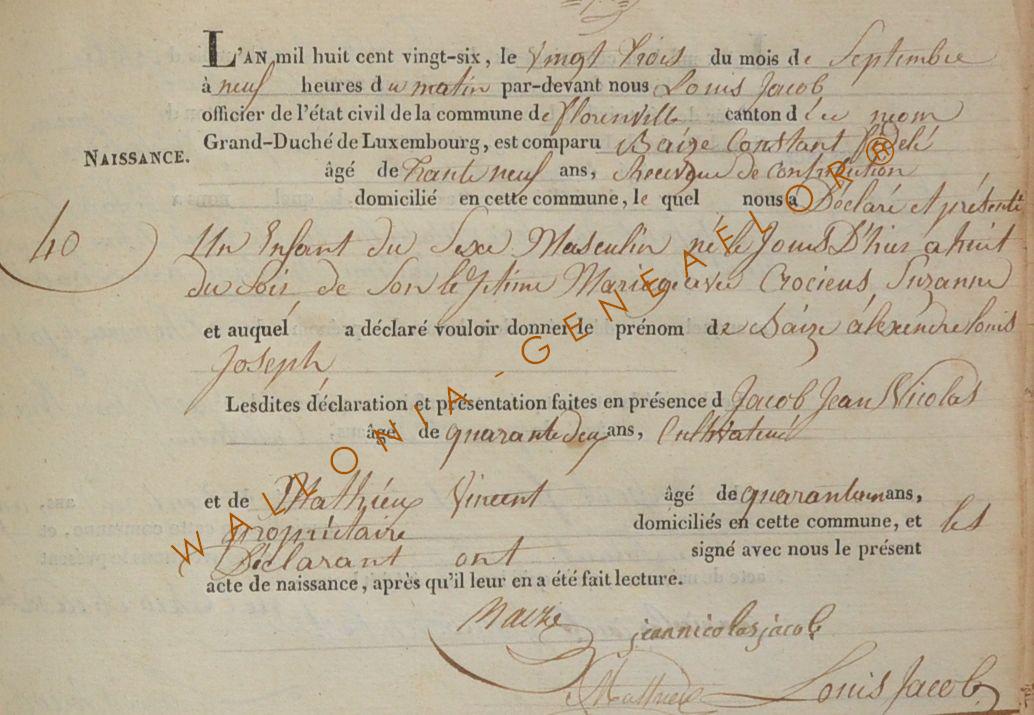 L'AN mil huit cent vingt-six, le vingt trois du mois de Septembre
à neuf heures du matin par-devant nous Louis Jacob
officier de l'état civil de la commune de florenville canton d
Grand-Duché de Luxembourg, est comparu Baize Constant fidelé
NAISSANCE.
âgé de trante neuf ans, Receveur de Contribution
domicilié en cette commune, le quel nous a Déclaré et présenté
40
Un Enfant du Sexe Masculin né le Jour D'hier a huit
du Soir de Son légitime Mariage avec Crociens Suzanne
et auquel a déclaré vouloir donner le prénom de Baize alexendre louis
Joseph
Lesdites déclaration et présentation faites en présence d Jacob Jean Nicolas
âgé de quarante deux ans, Cultivateur
et de Mathieu Vincent âgé de quarante un ans,
propriétaire domiciliés en cette commune, et les
Déclarant ont signé avec nous le présent
acte de naissance, après qu'il leur en a été fait lecture.
Baize jeannicolasjacob
Mathieu Louis Jacob
WALLONIA-GENEALOR®